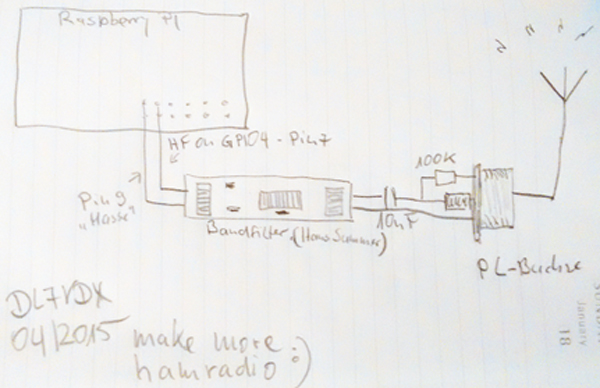 Raspberry Pi
HF on GPIO4 - Pin7
Pin 9
"Masse"
100K
10nF
Bandfilter (Hans Summer)
PL-Buchse
DL7VDX
04/2015 make more :)
hamradio
January
18